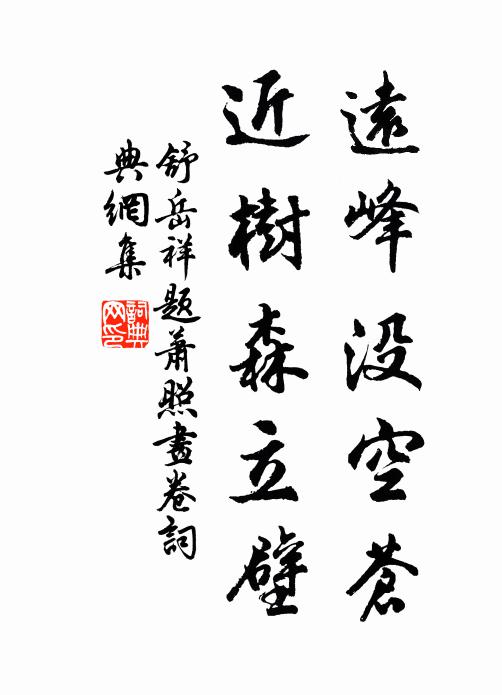 遠峰没空蒼
近樹森立壁
舒岳祥题蕭照畫卷詞
典網集
詞典
网印